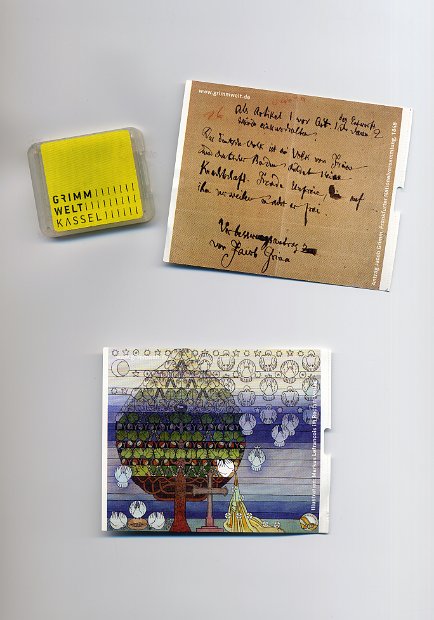 GRIMM
WELT
KASSEL
www.grimmwelt.de
Als Artikel 1 vor Art. 1, der Entwurfs
einzuschalten:
Das deutsche Volk ist ein Volk von Freien
und deutscher Boden duldet keine
Knechtschaft. Fremde Unfreie, die auf
ihm verweilen macht er frei.
Verbesserungsantrag
von Jacob Grimm
Antrag Jacob Grimm, Frankfurter Nationalversammlung, 1848
Illustration: Markus Lefrançois